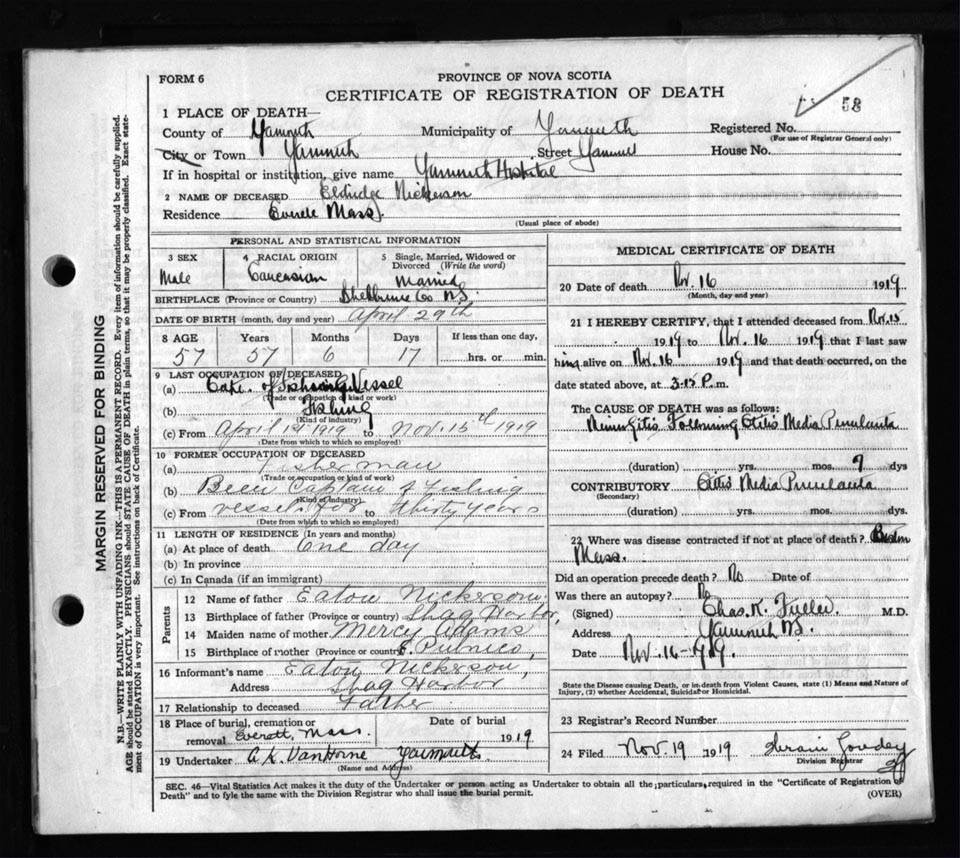 FORM 6
PROVINCE OF NOVA SCOTIA
CERTIFICATE OF REGISTRATION OF DEATH
58
1 PLACE OF DEATH—
County of Yarmouth Municipality of Yarmouth Registered No.
(For use of Registrar General only)
City or Town Yarmouth Street Yarmouth House No.
If in hospital or institution, give name Yarmouth Hospital
2 NAME OF DECEASED Eldridge Nickerson
Residence Everete Mass.
(Usual place of abode)
PERSONAL AND STATISTICAL INFORMATION
3 SEX 4 RACIAL ORIGIN 5 Single, Married, Widowed or Divorced (Write the word)
Male Caucasian Married
BIRTHPLACE (Province or Country) Shelburne Co NS.
DATE OF BIRTH (month, day and year) April 29th
8 AGE Years Months Days If less than one day,
57 57 6 17 hrs. or min.
9 LAST OCCUPATION OF DECEASED
(a) Capt. of Fishing Vessel
(Trade or occupation or kind or work)
(b) Fishing
(Kind of industry)
(c) From April 1st 1919 to Nov. 15th 1919
(Date from which to which so employed)
10 FORMER OCCUPATION OF DECEASED
(a) Fisherman
(Trade or occupation or kind of work)
(b) Been Captain of Fishing
(Kind of industry)
(c) From vessels for to thirty years
(Date from which to which so employed)
11 LENGTH OF RESIDENCE (In years and months)
(a) At place of death One day
(b) In province
(c) In Canada (if an immigrant)
Parents
12 Name of father Eaton Nickerson
13 Birthplace of father (Province or country) Shag Harbor,
14 Maiden name of mother Mercy Adams
15 Birthplace of mother (Province or country) E. Pubnico,
16 Informant's name Eaton Nickerson,
Address Shag Harbor
17 Relationship to deceased Father
18 Place of burial, cremation or removal Everett, Mass. Date of burial 1919
19 Undertaker A. K. VanHorne Yarmouth
(Name and Address)
MEDICAL CERTIFICATE OF DEATH
20 Date of death Nov. 16 1919
(Month, day and year)
21 I HEREBY CERTIFY, that I attended deceased from Nov. 15
1919 to Nov. 16 1919 that I last saw
him alive on Nov. 16 1919 and that death occurred, on the
date stated above, at 3.15 P. m.
The CAUSE OF DEATH was as follows:
Meningitis Following Otitis Media Purulenta
(duration) yrs. mos. 7 dys
CONTRIBUTORY Otitis Media Purulenta
(Secondary)
(duration) yrs. mos. dys.
22 Where was disease contracted if not at place of death? Boston
Mass.
Did an operation precede death? No Date of
Was there an autopsy? No
(Signed) Chas. K. Fuller. M.D.
Address Yarmouth N.S.
Date Nov. 16 - 1919.
State the Disease causing Death, or in death from Violent Causes, state (1) Means and Nature of
Injury, (2) whether Accidental, Suicidal or Homicidal.
23 Registrar's Record Number
24 Filed Nov. 19 1919
Division Registrar
SEC. 46—Vital Statistics Act makes it the duty of the Undertaker or person acting as Undertaker to obtain all the particulars, required in the "Certificate of Registration of
Death" and to fyle the same with the Division Registrar who shall issue the burial permit. (OVER)
MARGIN RESERVED FOR BINDING
N.B.—WRITE PLAINLY WITH UNFADING INK—THIS IS A PERMANENT RECORD. Every item of information should be carefully supplied.
AGE should be stated EXACTLY. PHYSICIANS should STATE CAUSE OF DEATH in plain terms, so that it may be properly classified. Exact state-
ment of OCCUPATION is very important. See instructions on back of Certificate.